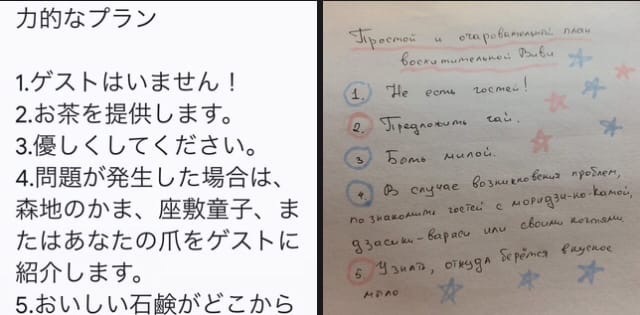 力的なプラン
1.ゲストはいません！
2.お茶を提供します。
3.優しくしてください。
4.問題が発生した場合は、
森地のかま、座敷童子、ま
たはあなたの爪をゲストに
紹介します。
5.おいしい石鹸がどこから
Простой и очаровательный план
восхитительной Виви
1. Не есть гостей!
2. Предложить чай.
3. Быть милой.
4. В случае возникновения проблем,
познакомить гостей с моридзи-но-камой,
дзасики-вараси или своими когтями.
5. Узнать, откуда берётся вкусное
мыло